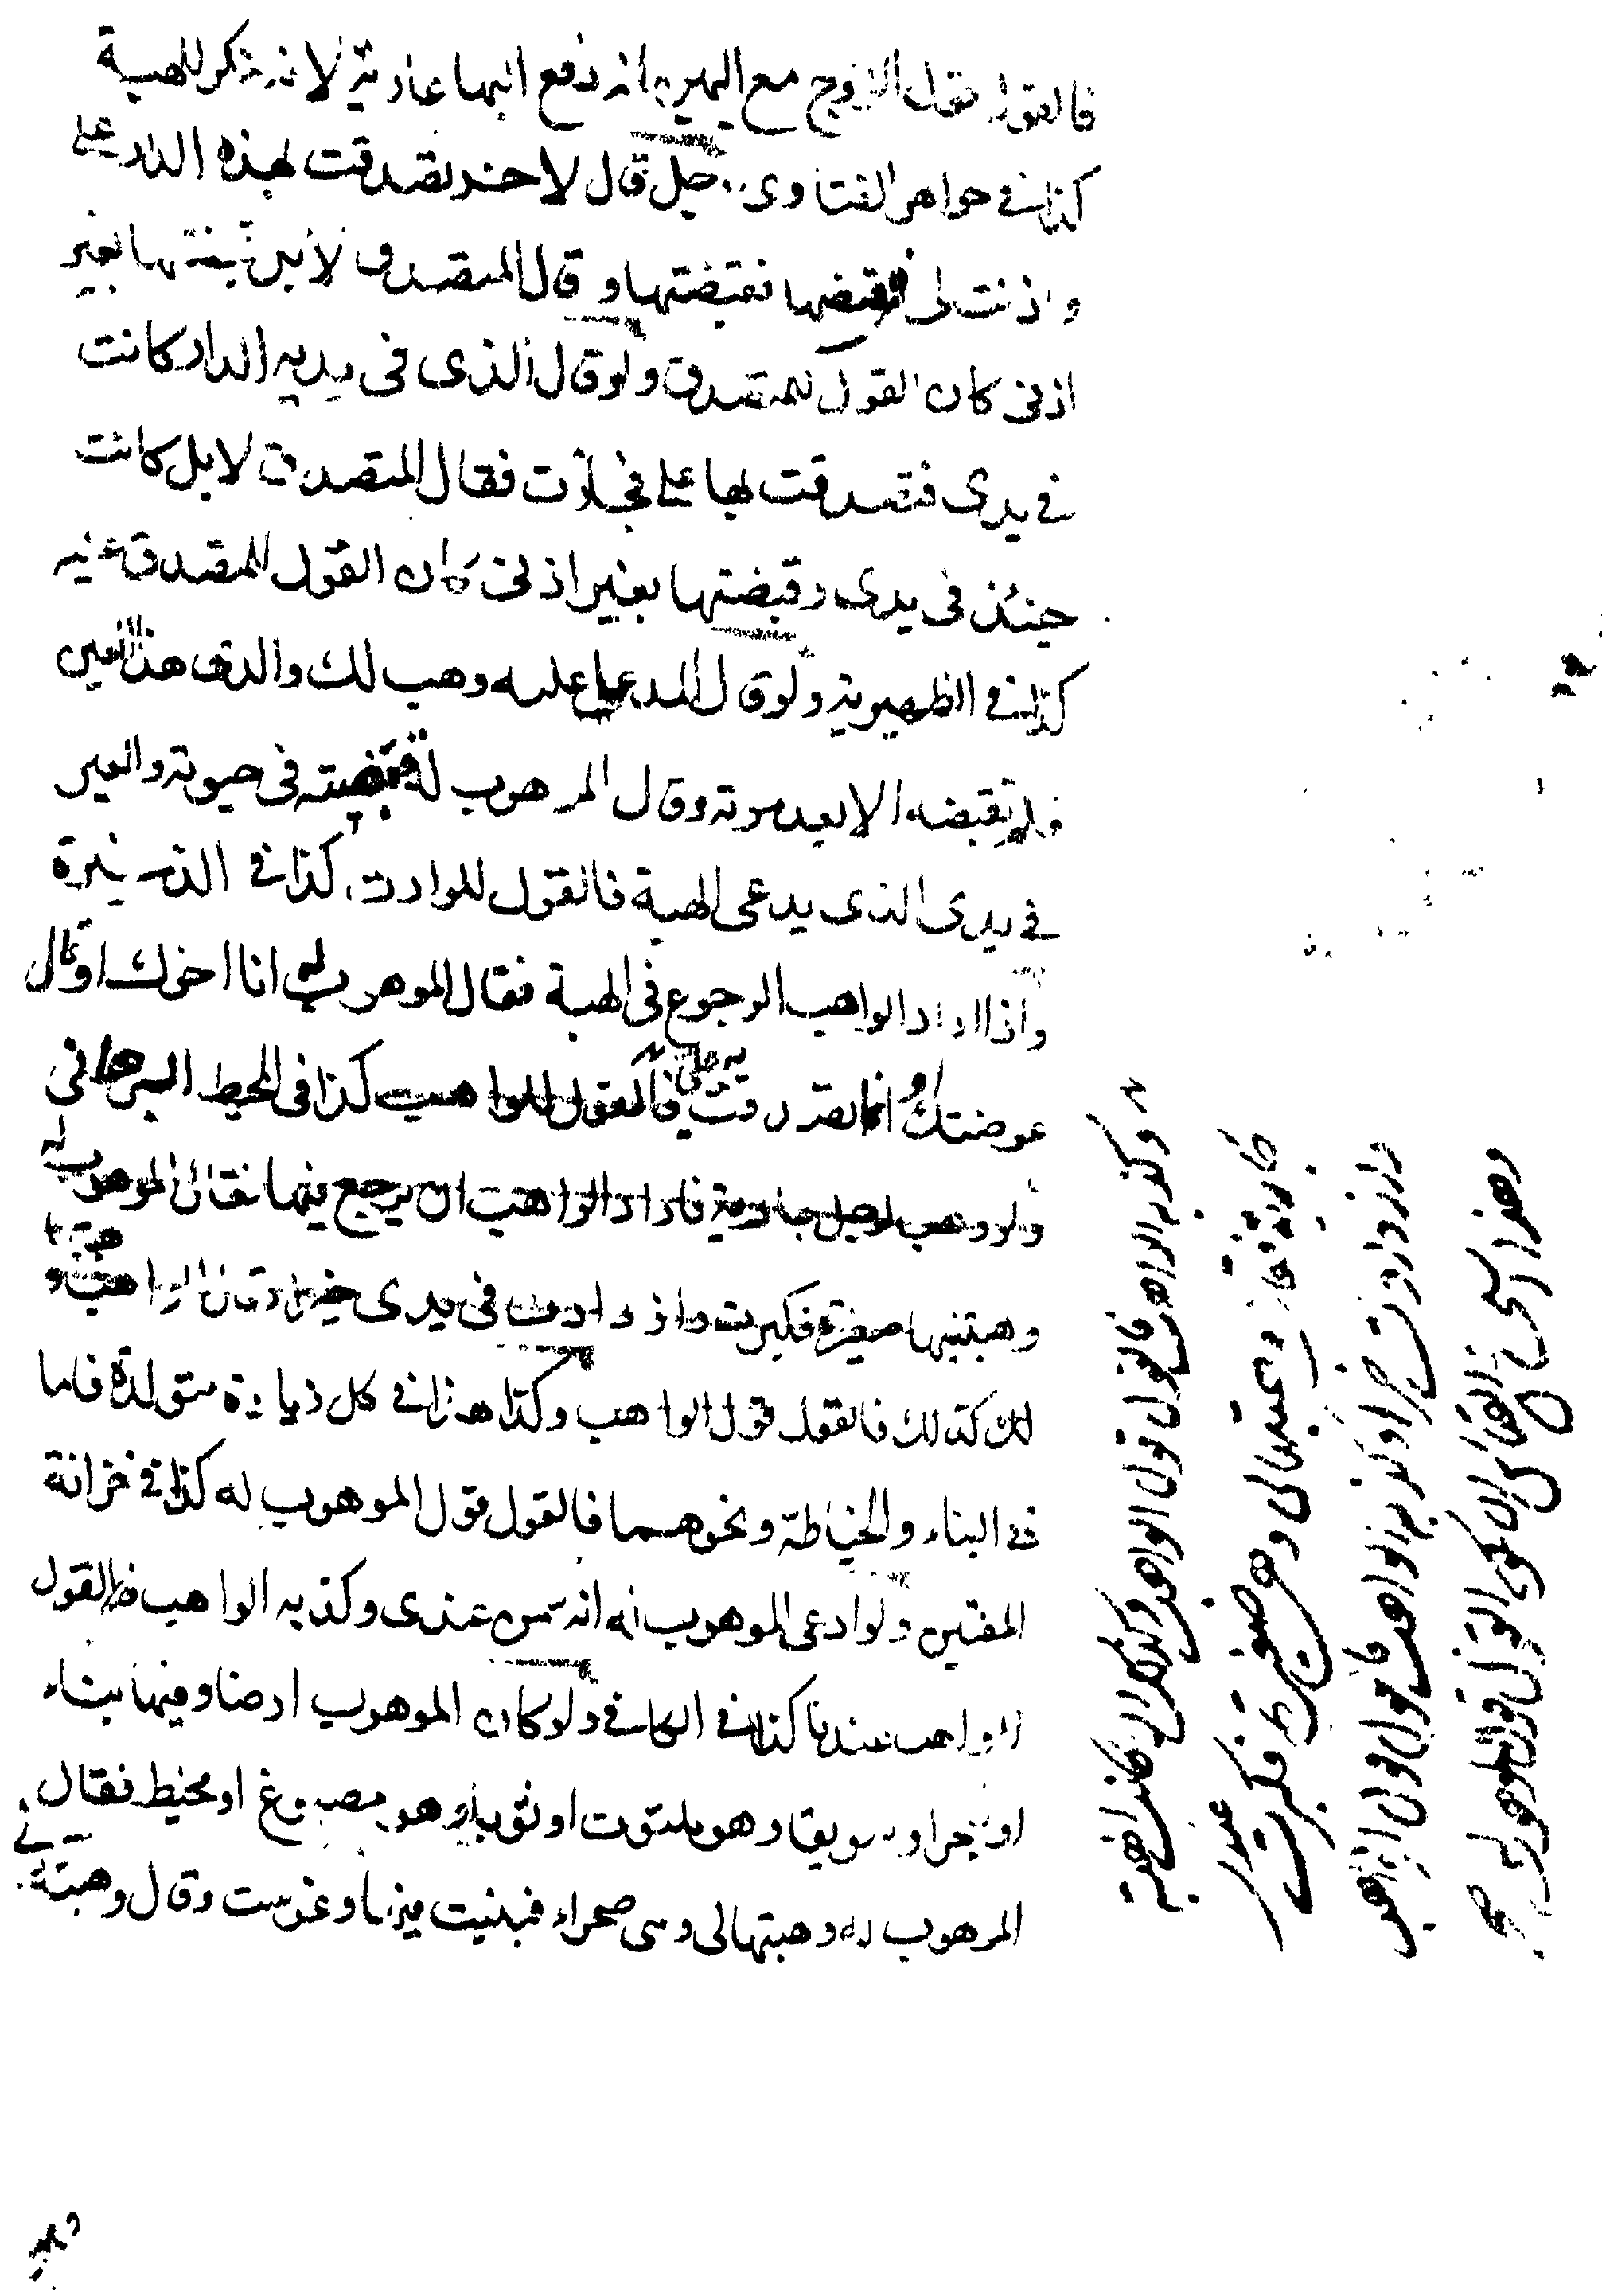 فالقول قول الزوج مع اليمين انه دفع اليها عارية لانه منكر للهبة
كذا في جواهر الفتاوى رجل قال لاخر تصدقت بهذه الدار على
واذنت لى فقبضها فقبضتها وقال المتصدق لا بل قبضتها بغير
اذنى كان القول للمتصدق ولو قال الذى فى يديه الدار كانت
في يدى فتصدقت بها على فجازت فقال المتصدق لا بل كانت
حينئذ فى يدى وقبضتها بغير اذنى كان القول للمتصدق عليه
كذا في الظهيرية ولو قال المدعى عليه وهب لك والدى هذا العين
فلم تقبضه الا بعد موته وقال الموهوب له قبضته فى حيوته والعين
في يدى الذى يدعى الهبة فالقول للوارث كذا في الذخيرة
واذا اراد الواهب الرجوع فى الهبة فقال الموهوب له انا اخوك او قال
عوضتك او انما تصدقت به على فالقول للواهب كذا فى المحيط البرهانى
ولو وهب لرجل جارية فاراد الواهب ان يرجع فيها فقال الموهوب له
وهبتنيها صغيرة فكبرت وازدادت فى يدى خيرا وقال الواهب وهبتها
لك كذلك فالقول قول الواهب وكذا هذا في كل زيادة متولدة فاما
في البناء والخياطة ونحوهما فالقول قول الموهوب له كذا في خزانة
المفتين ولو ادعى الموهوب له انه سمن عندى وكذبه الواهب فالقول
للواهب عندنا كذا في الكافي ولو كان الموهوب ارضا وفيها بناء
او شجر او سويقا وهو ملتوت او ثوبا وهو مصبوغ او مخيط فقال
الموهوب له وهبتها لى وهى صحراء فبنيت فيها وغرست وقال وهبته لى
وكذبه الواهب فالقول قول الواهب وكذلك ان كانت الهبة
جارية فقال وهبتها لى وهى صغيرة فكبرت عندى
وازدادت خيرا وكذبه الواهب فالقول قول الواهب
وهذا استحسان والقياس ان يكون القول قول الموهوب له